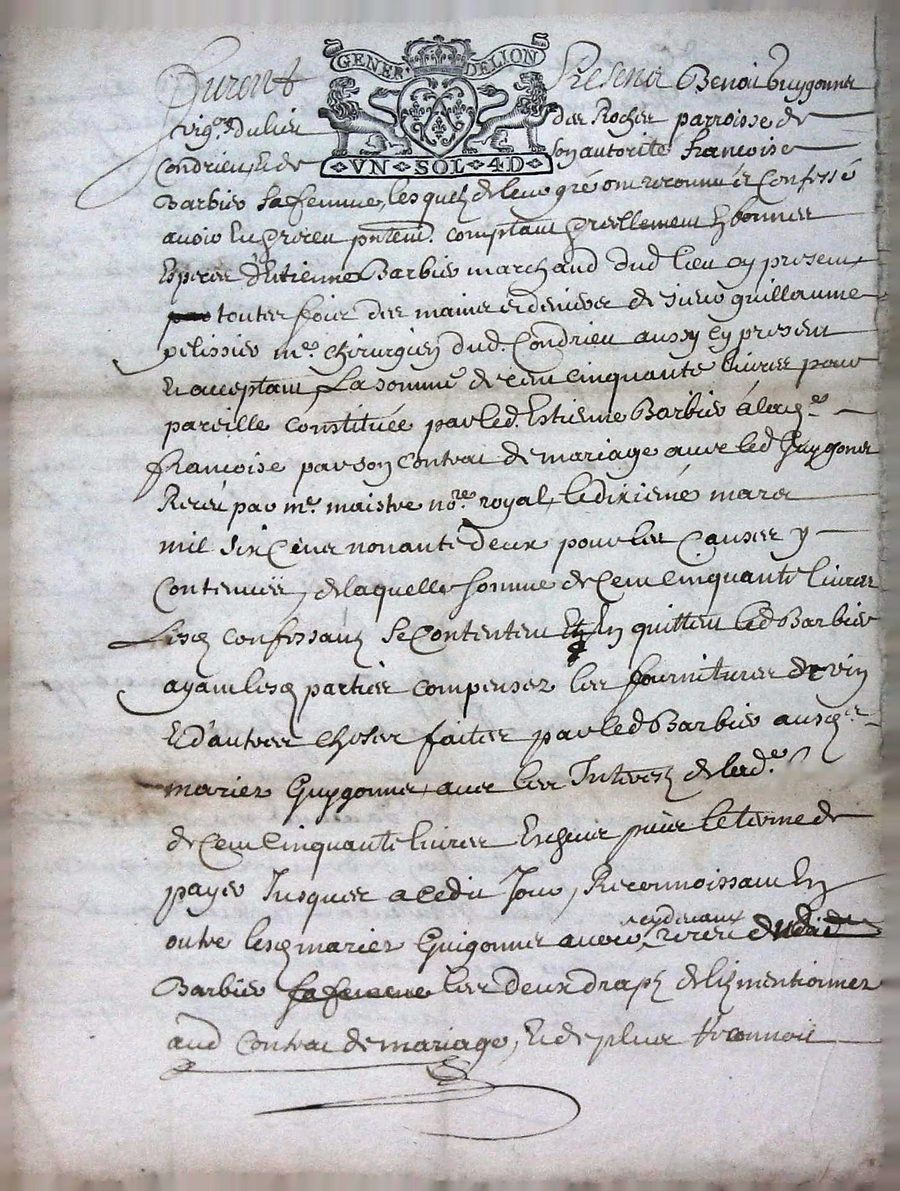 GENER DELION
VN SOL 4D
Furent Presens Benoit Guygonnet
vig.on du lieu des Roches parroisse de
Condrieu, & de son autorité francoise
Barbier sa femme, lesquelz de leur gré ont reconnu et Confessé
avoir Eu & receu pntem.t comptant reellement & bonnes
Especes d'Estienne Barbier marchand dud lieu cy present
toutes fois des mains et deniers de sieur guillaume
pelissier m.e chirurgien dud. Condrieu aussy cy present
& acceptant La somme de cent cinquante livres pour
pareille constituée par led. Estienne Barbier à lad.
francoise par son Contrat de mariage avec led Guygonnet
Receu par m.e maistre no.re royal, le dixiéme mars
mil six cens nonante deux pour les causes y
Contenues, de laquelle somme de Cent Cinquante livres
Lesd confessantz se Contentent & En quittent led Barbier
ayant lesd parties compensez les fournitures de vin
& d'autres choses faites par led Barbier ausd
mariez Guygonnet avec les Interestz de lad.e
de Cent cinquante livres Escheus puis le terme de
payer Jusques a cedit Jour, Reconnoissant En
outre lesd mariez Guigonnet avoir cy devant receu dudit
Barbier sa femme les deux drapz de lit mentionnez
aud Contrat de mariage, & de plus reconnoit